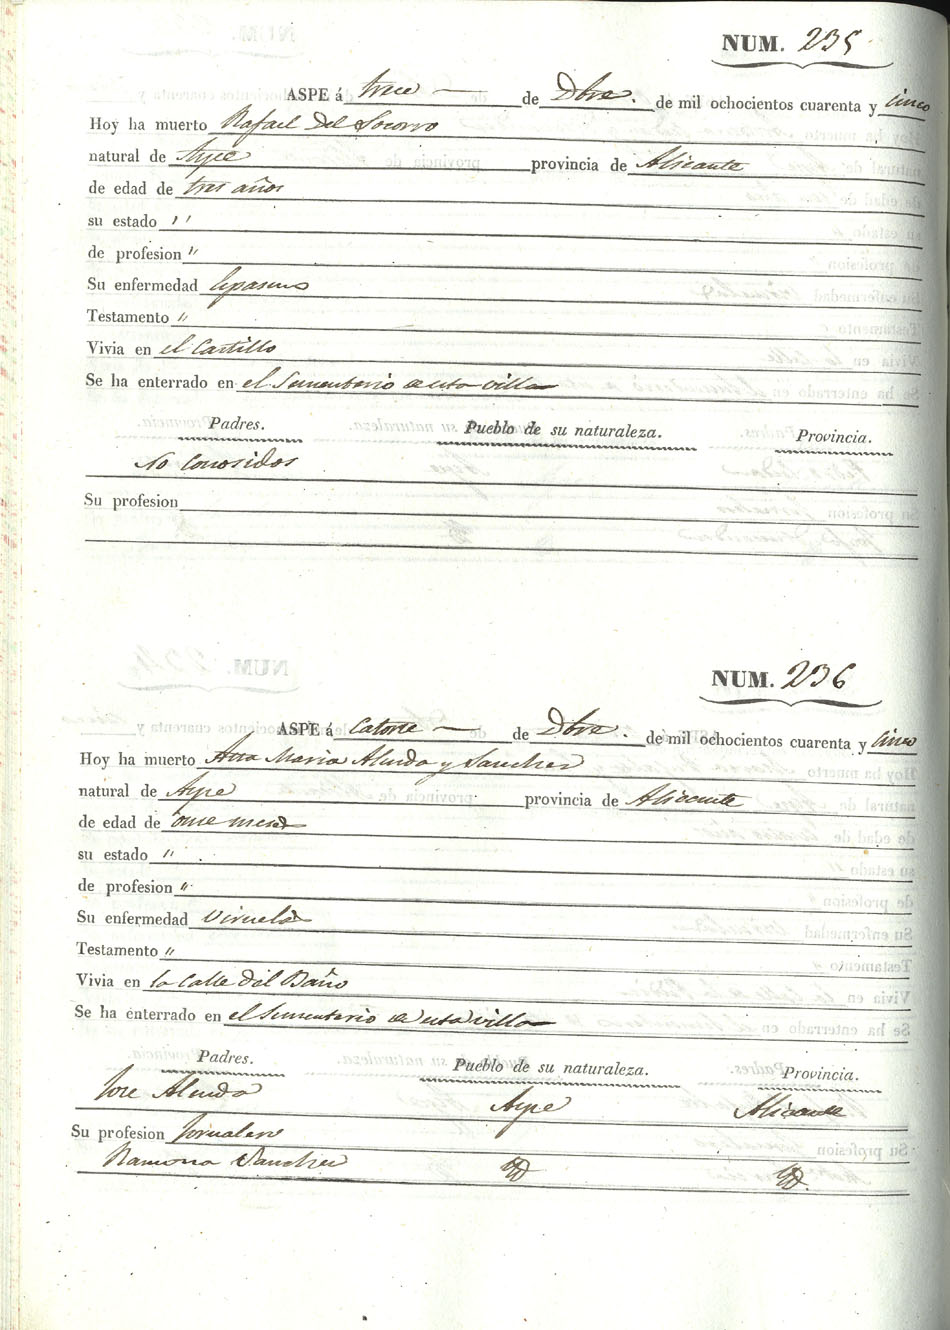 NUM. 235
ASPE á trece de Dbre. de mil ochocientos cuarenta y cinco
Hoy ha muerto Rafael Del Socorro
natural de Aspe provincia de Alicante
de edad de tres años
su estado "
de profesion "
Su enfermedad
Testamento "
Vivia en el Castillo
Se ha enterrado en el Sementerio de esta villa
Padres. Pueblo de su naturaleza. Provincia.
No Conosidos
Su profesion
NUM. 236
ASPE á Catorce de Dbre. de mil ochocientos cuarenta y cinco
Hoy ha muerto Ana Maria Almodo y Sanches
natural de Aspe provincia de Alicante
de edad de onse meses
su estado "
de profesion "
Su enfermedad Viruelas
Testamento "
Vivia en la Calle del Baño
Se ha enterrado en el Sementerio de esta villa
Padres. Pueblo de su naturaleza. Provincia.
Jose Aspe Alicante
Su profesion Jornalero
Ramona Sanches